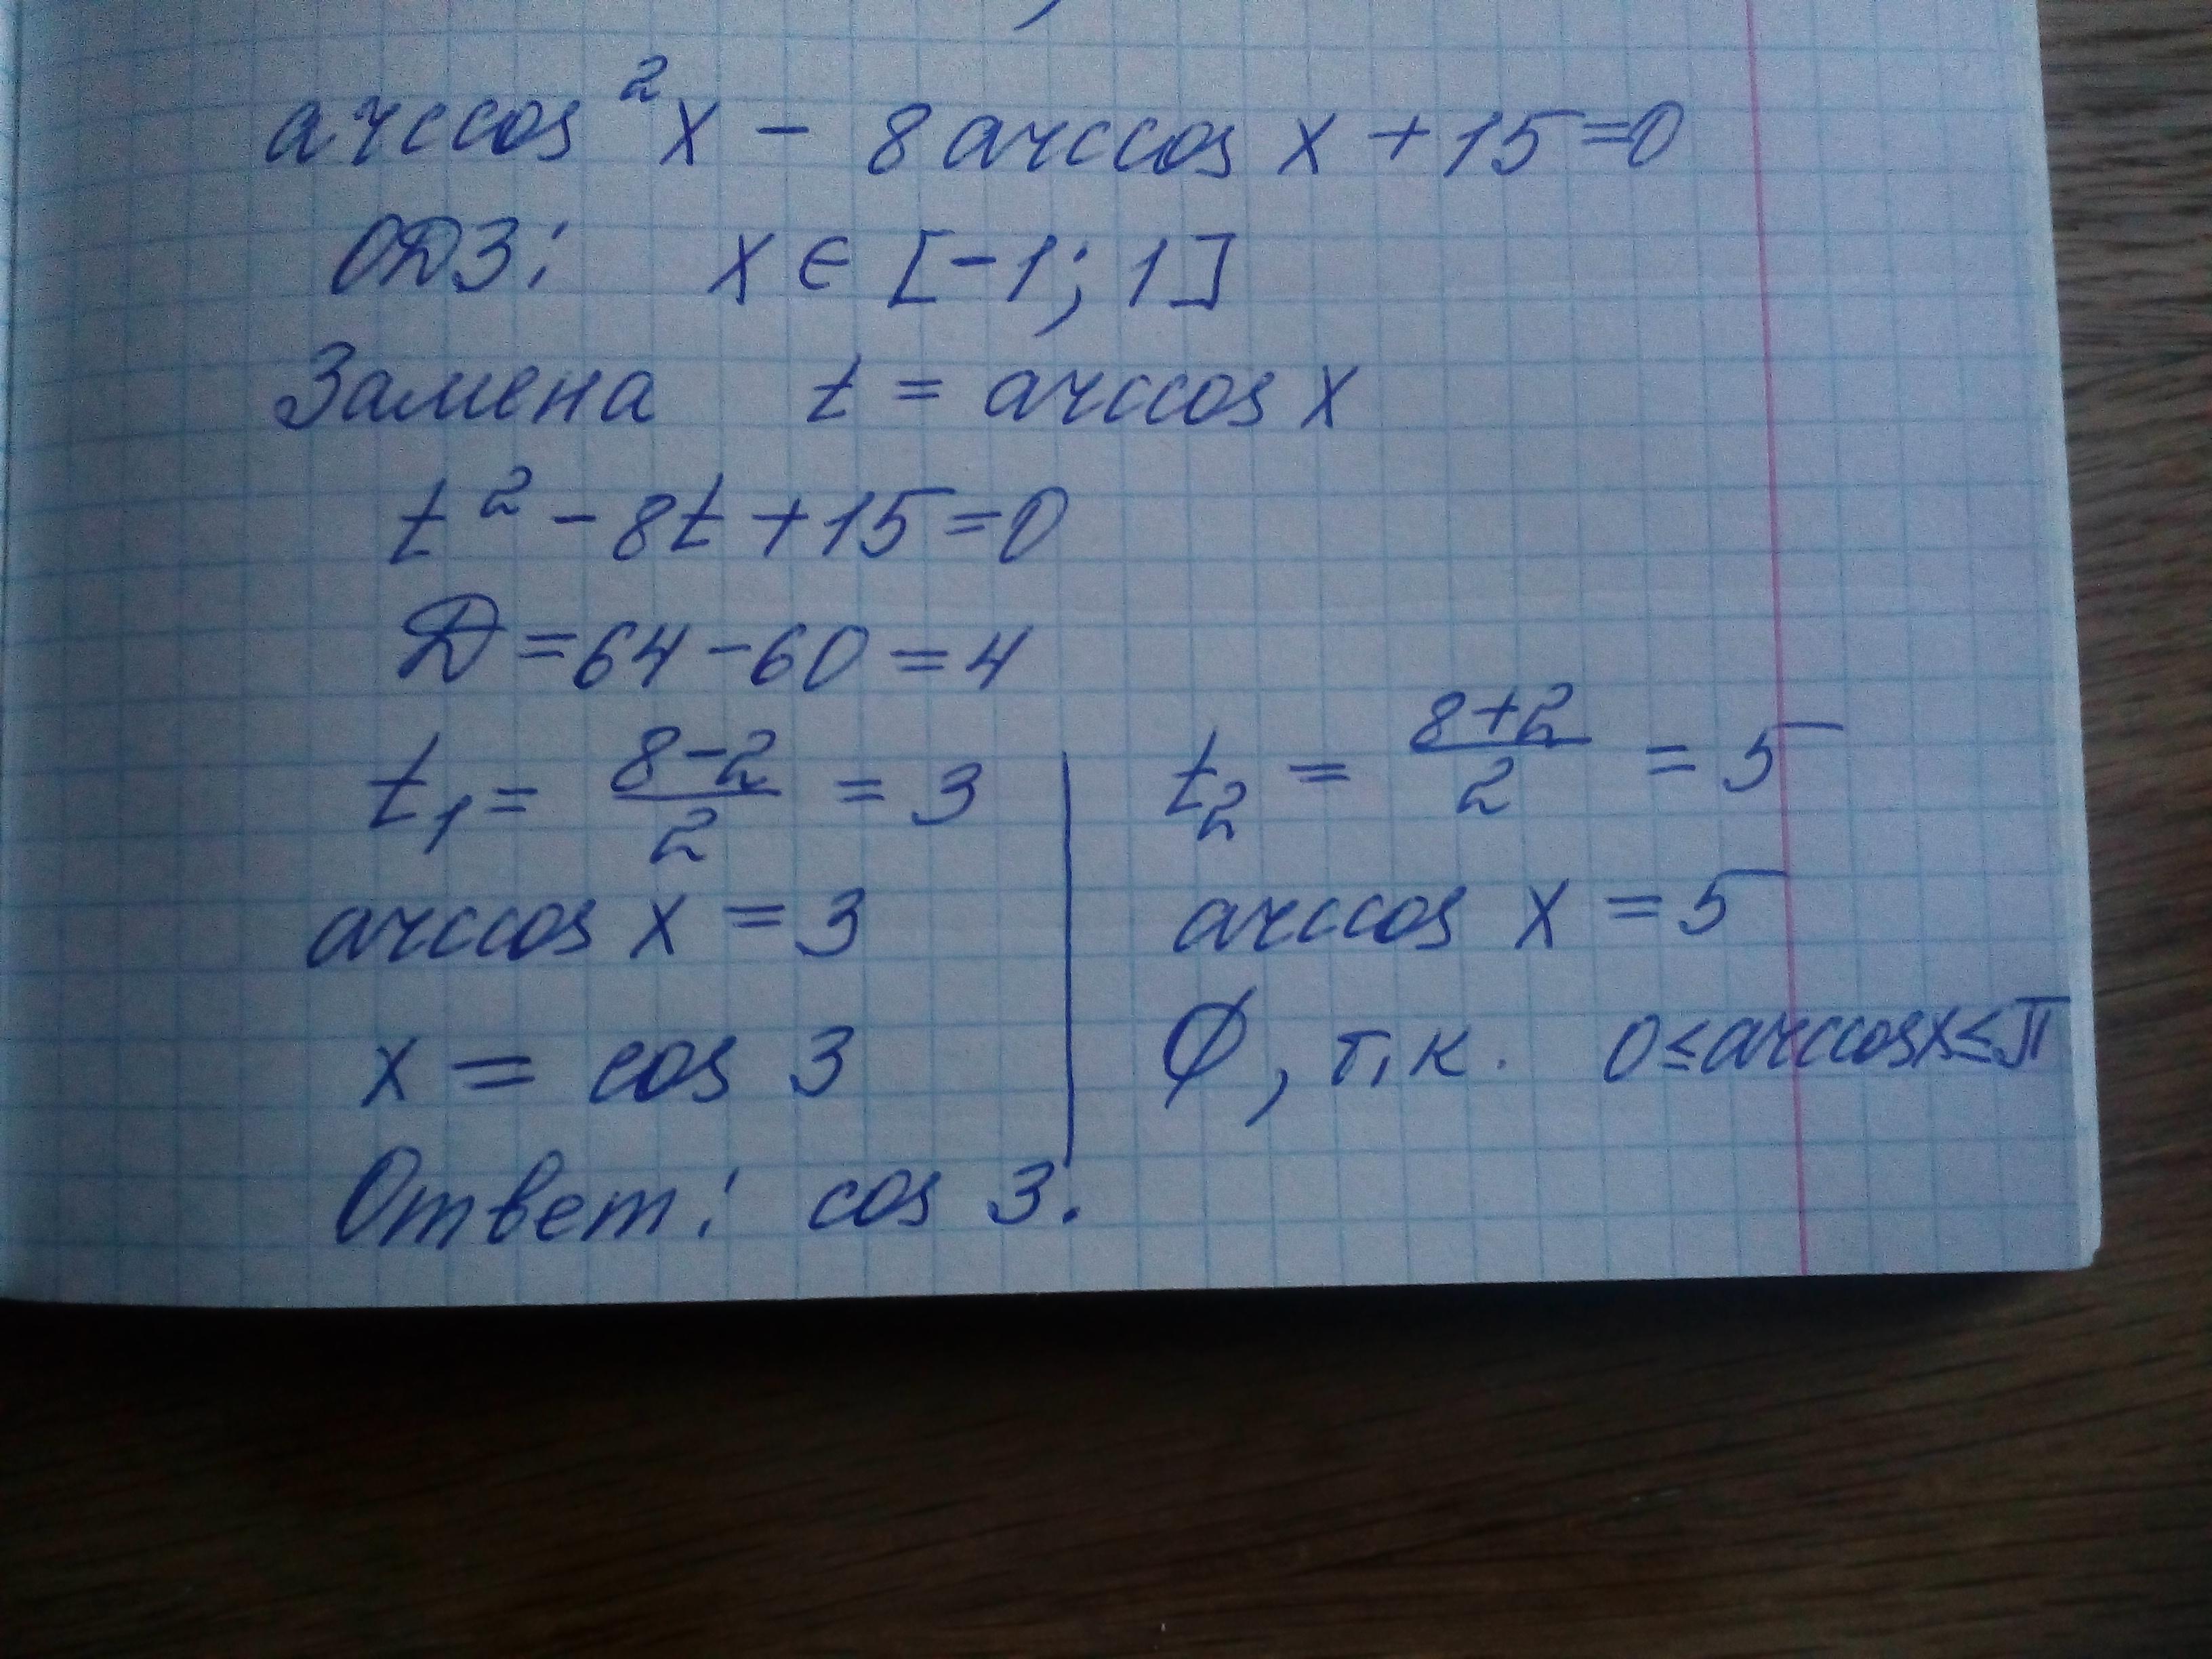 arccos²x - 8arccos x + 15 = 0
ОДЗ: x ∈ [-1; 1]
Замена t = arccos x
t² - 8t + 15 = 0
D = 64 - 60 = 4
t₁ = (8-2)/2 = 3
arccos x = 3
x = cos 3
t₂ = (8+2)/2 = 5
arccos x = 5
∅, т.к. 0 ≤ arccos x ≤ π
Ответ: cos 3.